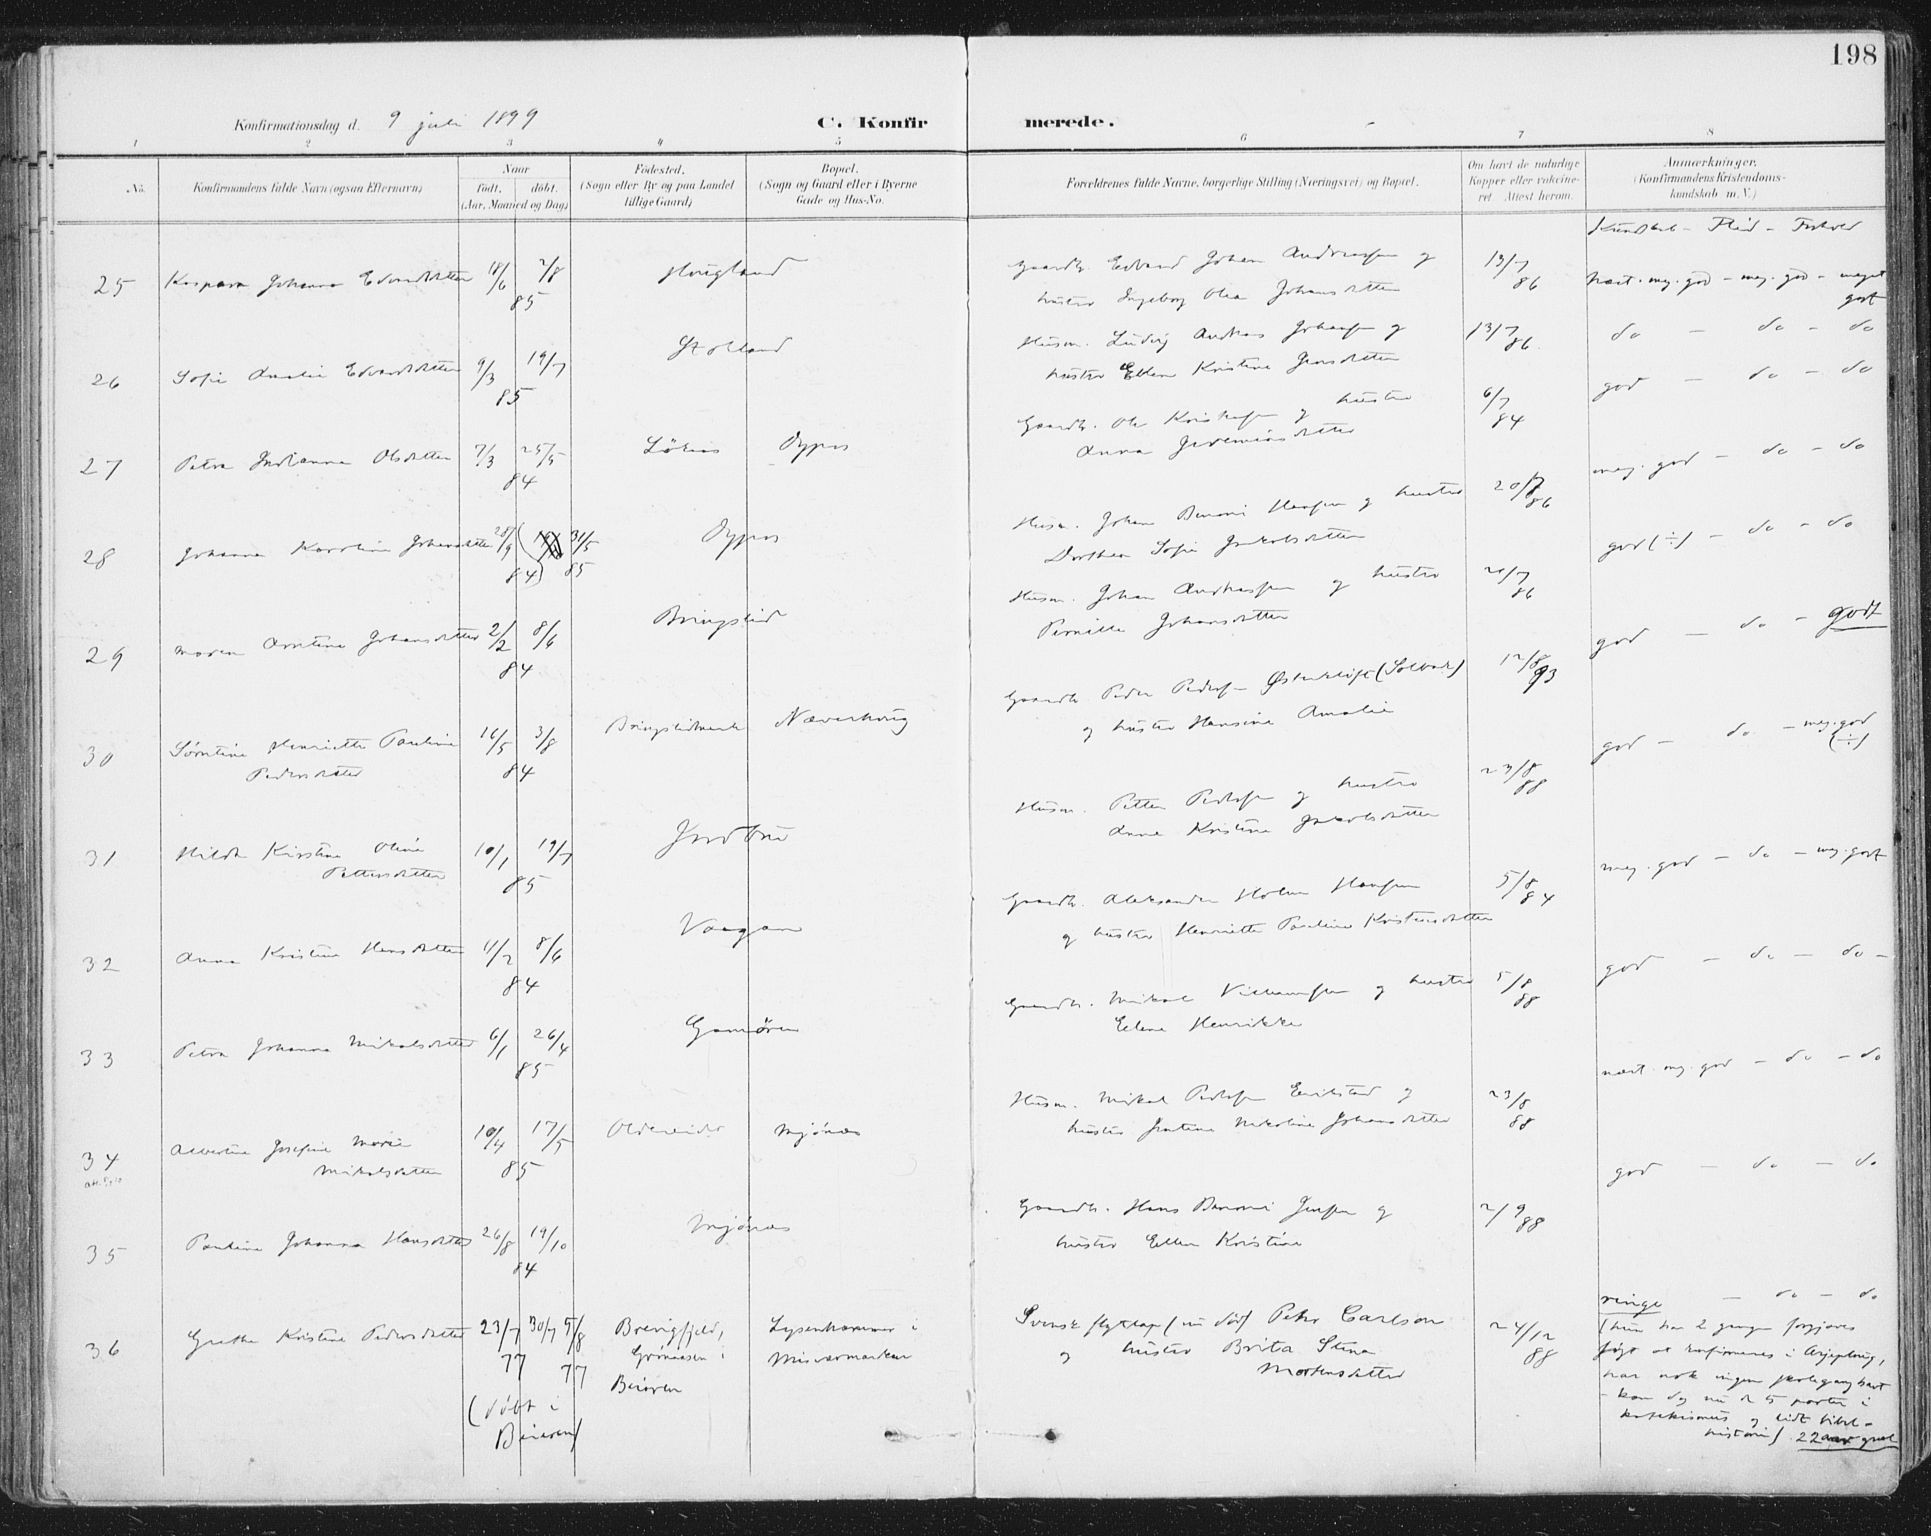 198
Konfirmationsdag d. 9 juli 1899
C. Konfirmerede.
1 2 3 4 5 6 7 8
No.
Konfirmandens fulde Navn (ogsaa Efternavn)
Naar
født. døbt.
(Aar, Maaned og Dag)
Födested.
(Sogn eller By og paa Landet
tillige Gaard)
Bopæl.
(Sogn og Gaard eller i Byerne
Gade og Hus-No.
Forældrenes fulde Navne, borgerlige Stilling (Næringsvei) og Bopæl.
Om havt de naturlige
Kopper eller vakcine-
ret. Attest herom.
Anmærkninger.
(Konfirmandens Kristendoms-
kundskab m. V.)
Kundskab - Flid - Forhold
25 Kaspara Johanna Edvardsdatter 18/6 2/8 85 Hougland
Gaardb. Edvard Johan Andreassen og
hustru Ingeborg Olea Johansdatter
13/7 86
næst. meg. god - meg. god - meget
godt
26 Sofie Amalie Edvardsdatter 9/3 19/7 85
Husm. Ludvig Andreas Johansen og
hustru Ellen Kristine Jensdatter
13/7 86.
do - do - do
27 Petra Indianna Olsdatter 7/3 25/5 84
Gaardb. Ole Kristensen og hustru
Anna Jeremiasdatter
6/7 84
god - do - do
28 Johanna Karoline Johansdatter 28/9 84) 31/5 85
Husm. Johan Benoni Hansen og hustru
Dorthea Sofie Jakobsdatter
20/7 86
meg. god - do - do
29 Maren Arntine Johansdatter 2/2 8/6 84 Bringslid
Husm. Johan Andreassen og hustru
Pernille Johansdatter
20/7 86
god (÷) - do - do
30 Sørntine Henriette Pauline
Pedersdatter
16/5 3/8 84 Bringslidmark Næverhoug
Gaardb. Peder Pedersen Østerkløft (Solbak)
og hustru Hansine Amalie
12/8 93
god - do - godt
31 Hilda Kirstine Oline
Pettersdatter
10/1 19/7 85
Husm. Petter Pedersen og hustru
Anna Kristine Jakobsdatter
23/8 88
god - do - meg. god
(÷)
32 Anna Kristine Hansdatter 11/2 8/6 84 Vaagan
Gaardb. Aleksander Holm Hansen
og hustru Henriette Pauline Kristensdatter
5/8 84
meg. god - do - meg. godt
33 Petra Johanna Mikalsdatter 6/1 26/4 85
Gaardb. Mikal Villumsen og hustru
Elene Henrikke
5/8 88
god - do - do -
34 Albertine Josefine Marie
Mikalsdatter
10/4 17/5 85 Oldereidet Mjönes
Husm. Mikal Pedersen Erikstad og
hustru Jentine Nikoline Johansdatter
23/8 88
næst. meg. god - do - do
35 Pauline Johanna Hansdatter 26/8 19/10 84 Mjönes
Gaardb. Hans Benoni Jensen og
hustru Ellen Kristine
2/9 88
god - do - do
36 Grethe Kristine Pedersdatter 23/7 77 30/7 5/8 77
(döbt i
Beieren)
Brevigfjeld,
Grönaasen i
Beieren
Lysenhammer i
Misværmarken
Svensk flytlap (nu död) Petr Carlson
og hustru Brita Stina
Mortensdatter
24/12 88
ringe - do - do
(hun har 2 gange forgjæves
søgt at konfirmeres i Arjeploug,
har nok ingen skolegang havt
- kan dog nu de 5 parter i
katekismus og lidt bibel-
historie) 22 aar gml